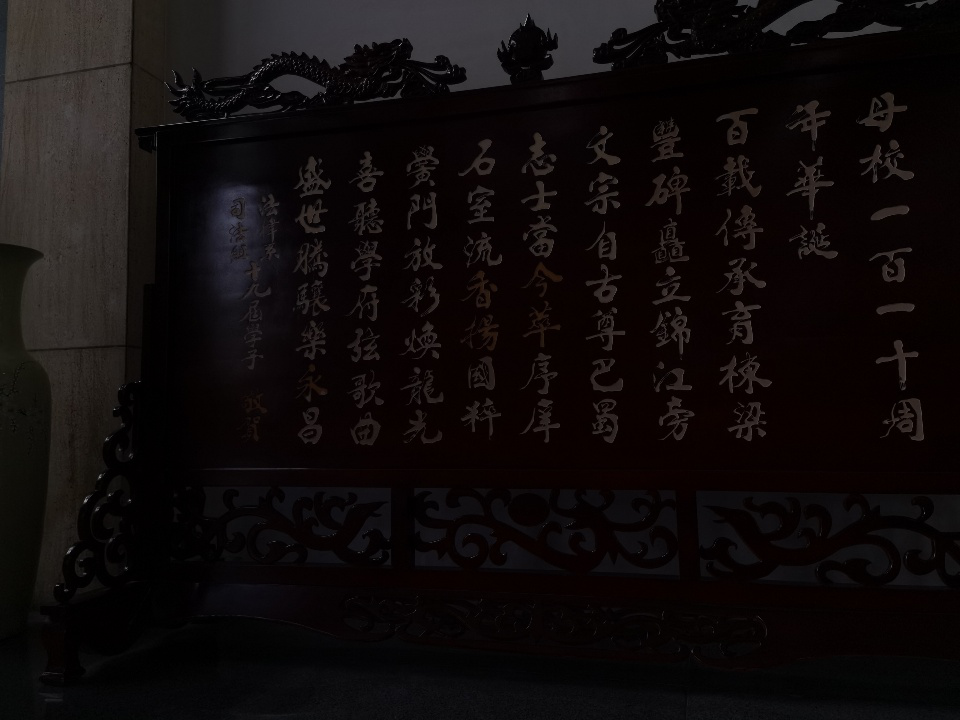 母校一百一十周
年華誕
百載傳承育棟梁
豐碑矗立錦江旁
文宗自古尊巴蜀
志士當今萃序庠
石室流香揚國粹
黌門放彩煥龍光
喜聽學府弦歌曲
盛世騰驤樂永昌
法律系
司法級十九屆學子 敬賀